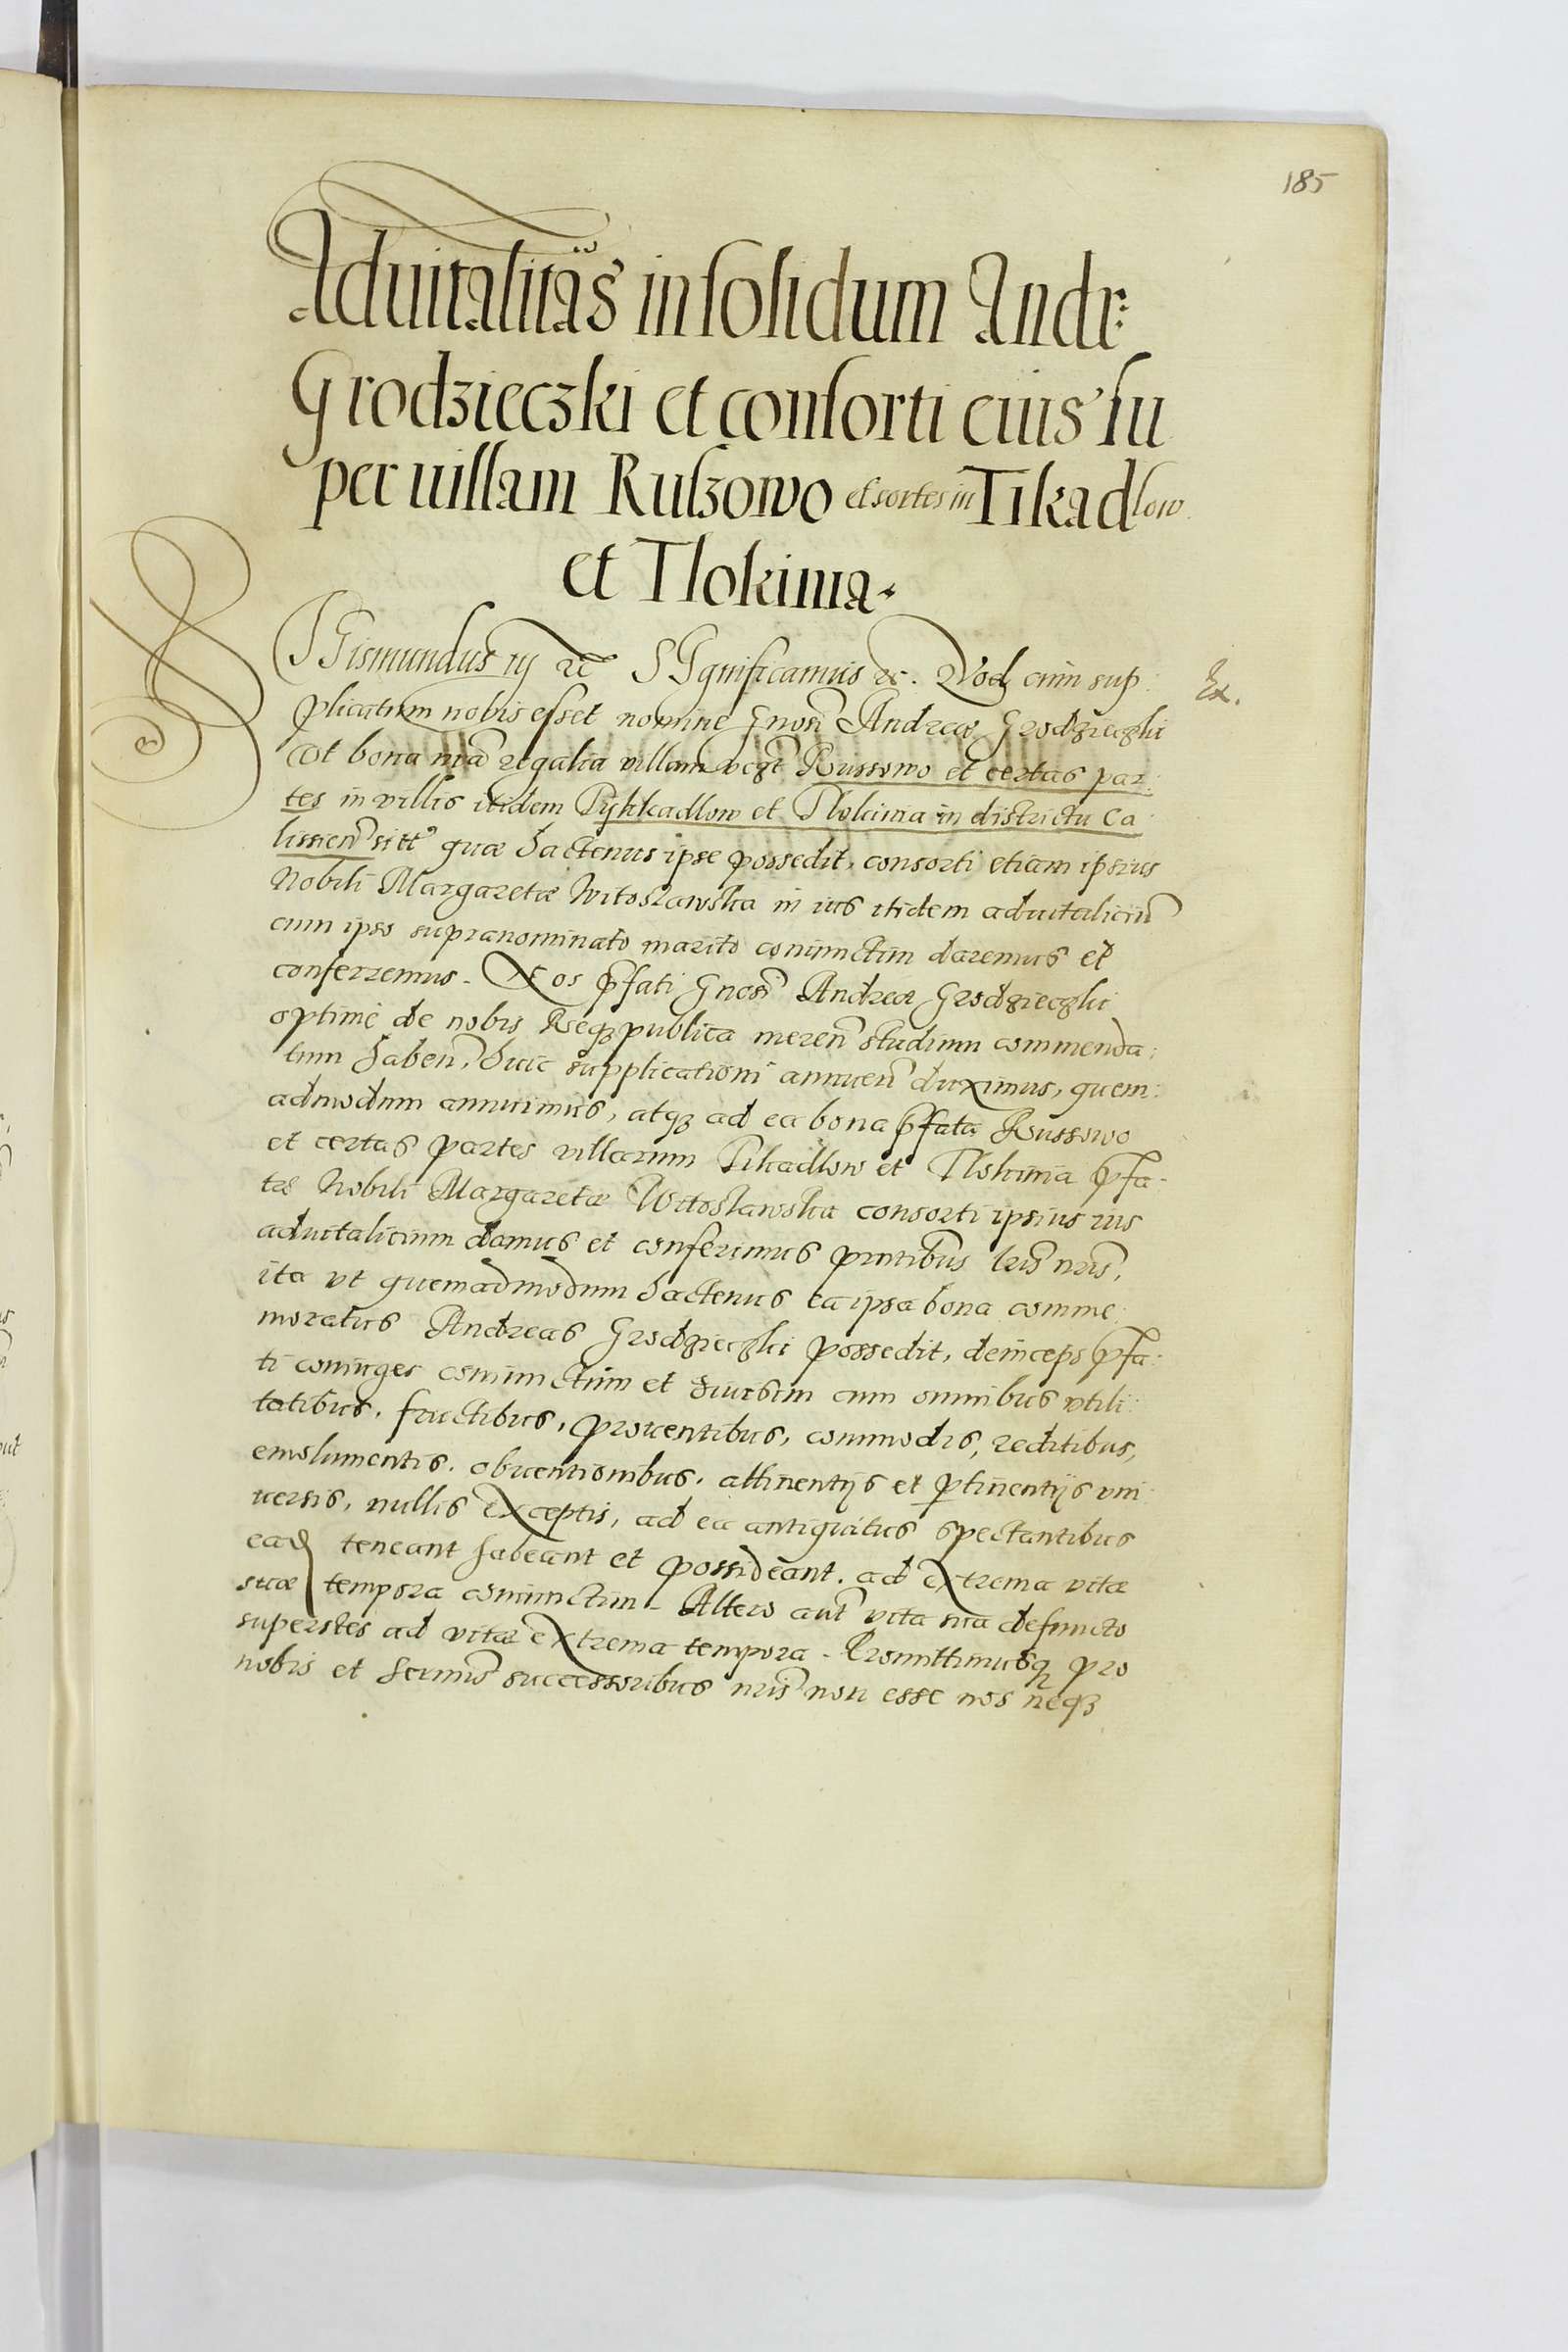 185
Aduitalitas in solidum Andr:
Grodzieczki et consorti eius su
per uillam Ruszowo et sortes in Tikadlow
et Tlokinia.
SGismundus iij rc̃ SIgnificamus rc. Quod cum sup:
Ex.
plicatum nobis esset nomine Gnosi Andreæ Grodzieczki
Vt bona nr̃a regalia villam vegt Russowo et certas par:
tes in villis itidem Tÿkkadlow et Tlokinia in districtu Ca
lissien̄ sitt quæ hactenus ipse possedit, consorti etiam ipsius
Nobili Margaretæ Witoslawska in ius itidem aduitaliciū
cum ipso supranominato marito coniunctim daremus et
conferremus. Nos p̄fati Gnosi Andreæ Grodzieczki
optime de nobis Reqz publica meren̄ studium commenda:
tum haben̄, huic supplicationi annuen̄ duximus, quem:
admodum annuimus, atqz ad ea bona p̄fata Russowo
et certas partes villarum Tikadlow et Tlokinia p̄fa-
tæ Nobili Margaretæ Witoslawska consorti ipsius ius
aduitalicium damus et conferimus pn̄tibus lr̄is nr̄is,
ita vt quemadmodum hactenus ea ipsa bona comme
moratus Andreas Grodzieczki possedit, deinceps p̄fa:
ti coniuges coniunctim et diuisim cum omnibus vtili
tatibus, fructibus, prouentibus, commodis, reditibus,
emolumentis, obuentionibus, attinentijs et ptinentijs vni
uersis, nullis exceptis, ad ea antiquitus spectantibus
ead teneant habeant et possideant, ad extrema vitæ
suæ tempora coniunctim. Altero aut̄ vita sua defuncto
superstes ad vitæ extrema tempora. Promittimusqz pro
nobis et Sermis successoribus nr̄is non esse nos neqz